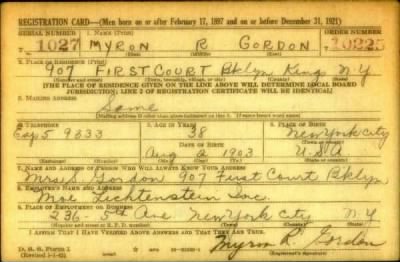 REGISTRATION CARD—(Men born on or after February 17, 1897 and on or before December 31, 1921)
SERIAL NUMBER 1. NAME (Print) ORDER NUMBER
T 1027 MYRON R GORDON 10225
(First) (Middle) (Last)
2. PLACE OF RESIDENCE (Print)
907 FIRST COURT Bklyn King N.Y
(Number and street) (Town, township, village, or city) (County) (State)
[THE PLACE OF RESIDENCE GIVEN ON THE LINE ABOVE WILL DETERMINE LOCAL BOARD
JURISDICTION; LINE 2 OF REGISTRATION CERTIFICATE WILL BE IDENTICAL]
3. MAILING ADDRESS
Same
[Mailing address if other than place indicated on line 2. If same insert word same]
4. TELEPHONE 5. AGE IN YEARS 6. PLACE OF BIRTH
Esp 5 9333 38 New York City
DATE OF BIRTH (Town or county)
Aug 2 1903 U.S.A
(Exchange) (Number) (Mo.) (Day) (Yr.) (State or country)
7. NAME AND ADDRESS OF PERSON WHO WILL ALWAYS KNOW YOUR ADDRESS
Mrs S. Gordon 907 First Court Bklyn
8. EMPLOYER'S NAME AND ADDRESS
Moe Lichtenstein Inc.
9. PLACE OF EMPLOYMENT OR BUSINESS
236 - 5th Ave New York City N.Y
(Number and street or R. F. D. number) (Town) (County) (State)
I AFFIRM THAT I HAVE VERIFIED ABOVE ANSWERS AND THAT THEY ARE TRUE.
D. S. S. Form 1
Myron R. Gordon